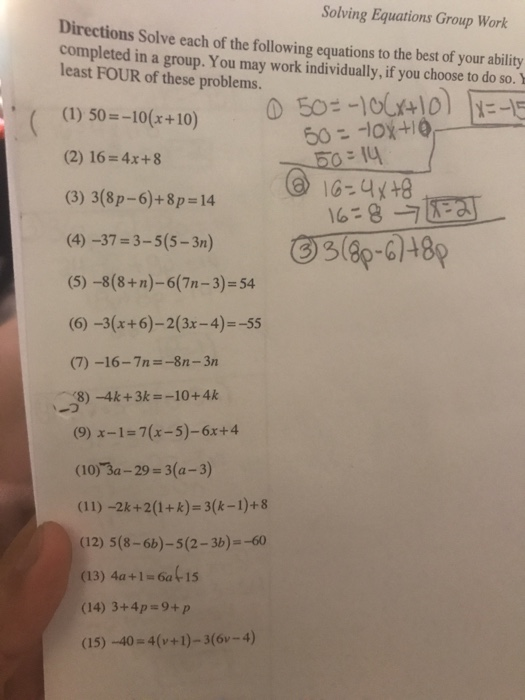 Solving Equations Group Work
Directions Solve each of the following equations to the best of your ability
completed in a group. You may work individually, if you choose to do so.
least FOUR of these problems.
(1) 50=-10(x+10)
(2) 16=4x+8
(3) 3(8p-6)+8p=14
(4) -37=3-5(5-3n)
(5) -8(8+n)-6(7n-3)=54
(6) -3(x+6)-2(3x-4)=-55
(7) -16-7n=-8n-3n
(8) -4k+3k=-10+4k
(9) x-1=7(x-5)-6x+4
(10) 3a-29=3(a-3)
(11) -2k+2(1+k)=3(k-1)+8
(12) 5(8-6b)-5(2-3b)=-60
(13) 4a+1=6a-15
(14) 3+4p=9+p
(15) -40=4(v+1)-3(6v-4)
① 50=-10(x+10) x=-15
50=-10x+10
50=14
② 16=4x+8
16=8 → x=2
③ 3(8p-6)+8p